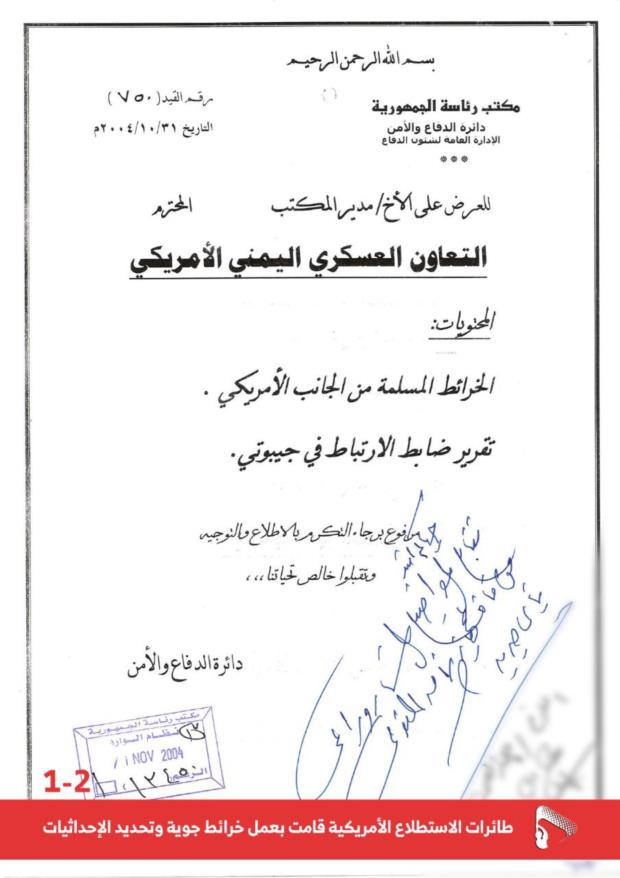 بسم الله الرحمن الرحيم
مكتب رئاسة الجمهورية
دائرة الدفاع والأمن
الإدارة العامة لشئون الدفاع
***
رقم القيد (٧٥٠)
التاريخ ٢٠٠٤/١٠/٣١م
للعرض على الأخ/ مدير المكتب المحترم
التعاون العسكري اليمني الأمريكي
المحتويات:
الخرائط المسلمة من الجانب الأمريكي .
تقرير ضابط الارتباط في جيبوتي.
مرفوع برجاء التكرم بالاطلاع والتوجيه
وتقبلوا خالص تحياتنا ,,,
دائرة الدفاع والأمن
مكتب رئاسة الجمهورية
نظام الوارد
1 NOV 2004
1-2
طائرات الاستطلاع الأمريكية قامت بعمل خرائط جوية وتحديد الإحداثيات